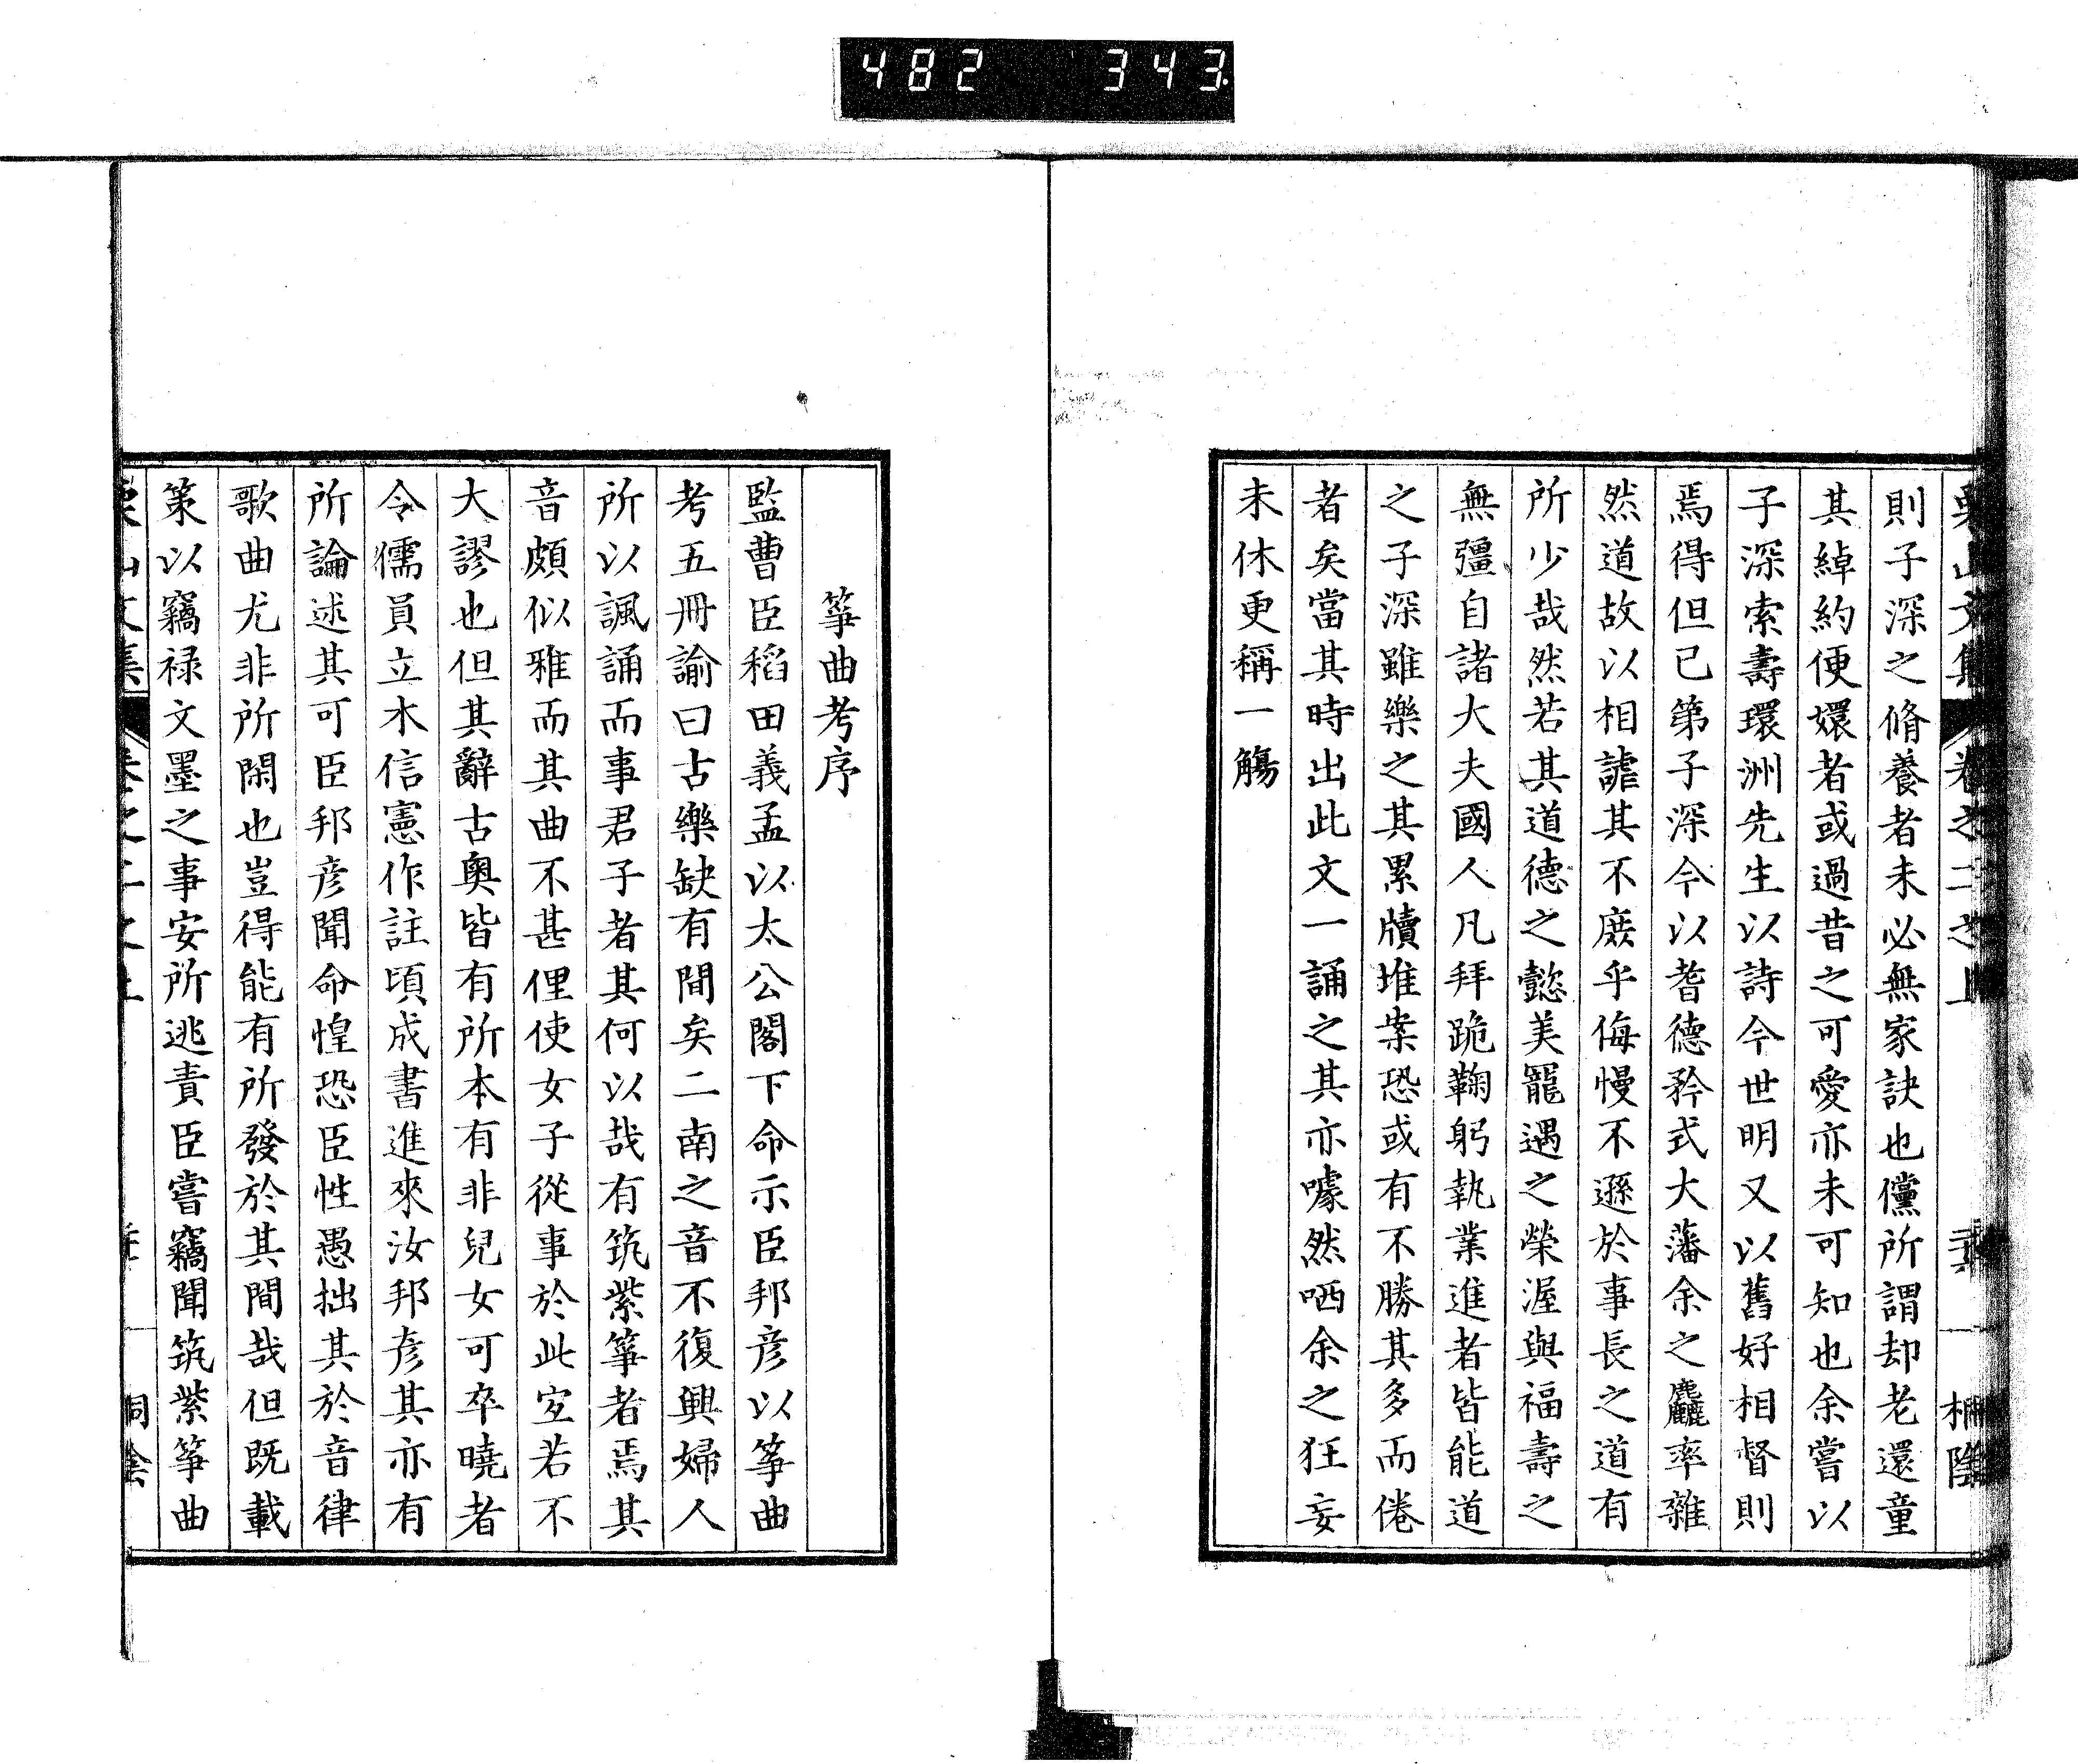 482 343
栗山文集 卷之二之上
則子深之脩養者未必無家訣也儻所謂却老還童
其綽約便嬛者或過昔之可愛亦未可知也余嘗以
子深索壽環洲先生以詩今世明又以舊好相督則
焉得但已第子深今以耆德矜式大藩余之麤率雜
然道故以相謔其不廢乎侮慢不遜於事長之道有
所少哉然若其道德之懿美寵遇之榮渥與福壽之
無彊自諸大夫國人凡拜跪鞠躬執業進者皆能道
之子深雖樂之其累牘堆案恐或有不勝其多而倦
者矣當其時出此文一誦之其亦噱然哂余之狂妄
未休更稱一觴
箏曲考序
監曹臣稻田義孟以太公閣下命示臣邦彦以箏曲
考五冊諭曰古樂缺有間矣二南之音不復興婦人
所以諷誦而事君子者其何以哉有筑紫箏者焉其
音頗似雅而其曲不甚俚使女子從事於此宐若不
大謬也但其辭古奧皆有所本有非兒女可卒曉者
令儒員立木信憲作註頃成書進來汝邦彦其亦有
所論述其可臣邦彦聞命惶恐臣性愚拙其於音律
歌曲尤非所閑也豈得能有所發於其間哉但既載
策以竊禄文墨之事安所逃責臣嘗竊聞筑紫箏曲
栗山文集 卷之二之上